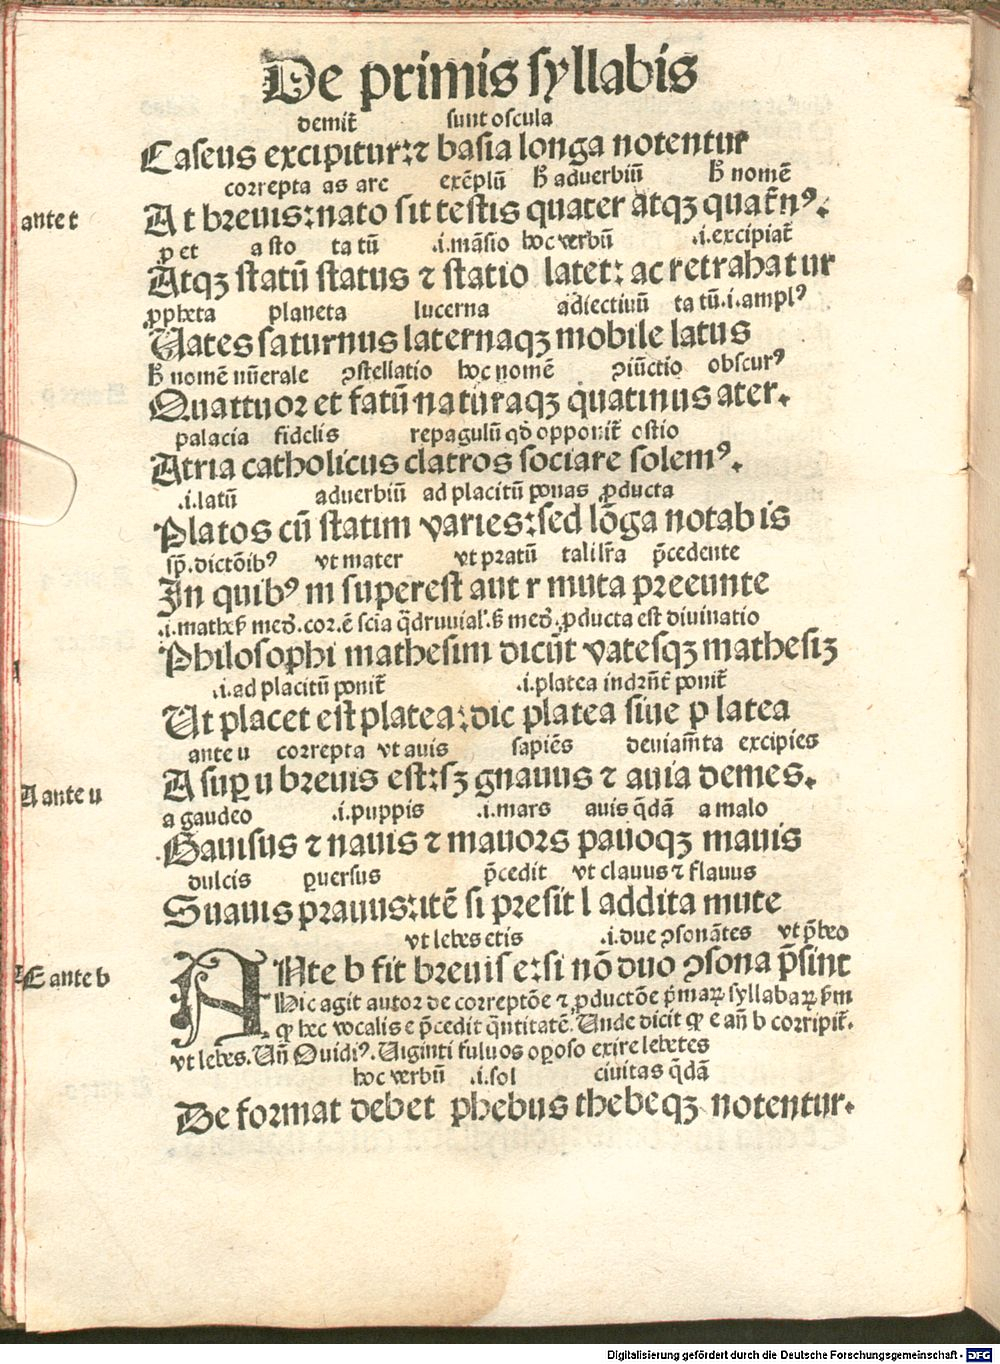 De primis syllabis
demit̃ sunt oscula
Caseus excipitur:⁊ basia longa notentur
correpta as are exẽplũ ħ aduerbiũ ħ nomẽ
ante t
At breuis:nato sit testis quater atqꝫ quat̃nꝰ.
ꝓ et a sto ta tũ .i.mãsio hoc verbũ .i.excipiat̃
Atqꝫ statũ status ⁊ statio latet: ac retrahatur
ꝓpheta planeta lucerna adiectiuũ ta tũ.i.amplꝰ
Uates saturnus laternaqꝫ mobile latus
ħ nomẽ nũerale ↄstellatio hoc nomẽ ↄiũctio obscurꝰ
Quattuor et fatũ naturaqꝫ quatinus ater.
palacia fidelis repagulũ qd̃ opponit̃ ostio
Atria catholicus clatros sociare solemꝰ.
.i.latũ aduerbiũ ad placitũ ponas ꝓducta
Platos cũ statim varies:sed lõga notabis
sp̃.dictõibꝰ vt mater vt pratũ tali lr̃a p̃cedente
In quibꝰ m superest aut r muta preeunte
.i.mathe͛ með.cor.ẽ scia q̃druuial᷒.ẞ með.ꝓducta est diuinatio
Philosophi mathesim dicũt vatesqꝫ mathesiꝫ
.i.ad placitũ ponit̃ .i.platea indrñt̃ ponit̃
Ut placet est platea:dic platea siue platea
ante u correpta vt auis sapiẽs deuiam̃ta excipies
A suꝑ u breuis est:sꝫ gnauus ⁊ auia demes.
A ante u
a gaudeo .i.puppis .i.mars auis q̃dã a malo
Gauisus ⁊ nauis ⁊ mauors pauoqꝫ mauis
dulcis ꝑuersus p̃cedit vt clauus ⁊ flauus
Suauis prauus:itẽ si presit l addita mute
vt lebes etis .i.due ↄsonãtes vt p̃beo
E ante b
ANte b fit breuis e:si nõ duo ↄsona p̃sint
Hic agit autor de correptõe ⁊ ꝓductõe p̃maꝝ syllabaꝝ ẞm
ꝙ hec vocalis e p̃cedit q̃ntitatẽ. Unde dicit ꝙ e añ b corripit̃.
vt lebes. Uñ Ouidiꝰ. Uiginti fuluos oꝑoso exire lebetes
hoc verbũ .i.sol ciuitas q̃dã
De format debet phebus thebeqꝫ notentur.
Digitalisierung gefördert durch die Deutsche Forschungsgemeinschaft - DFG